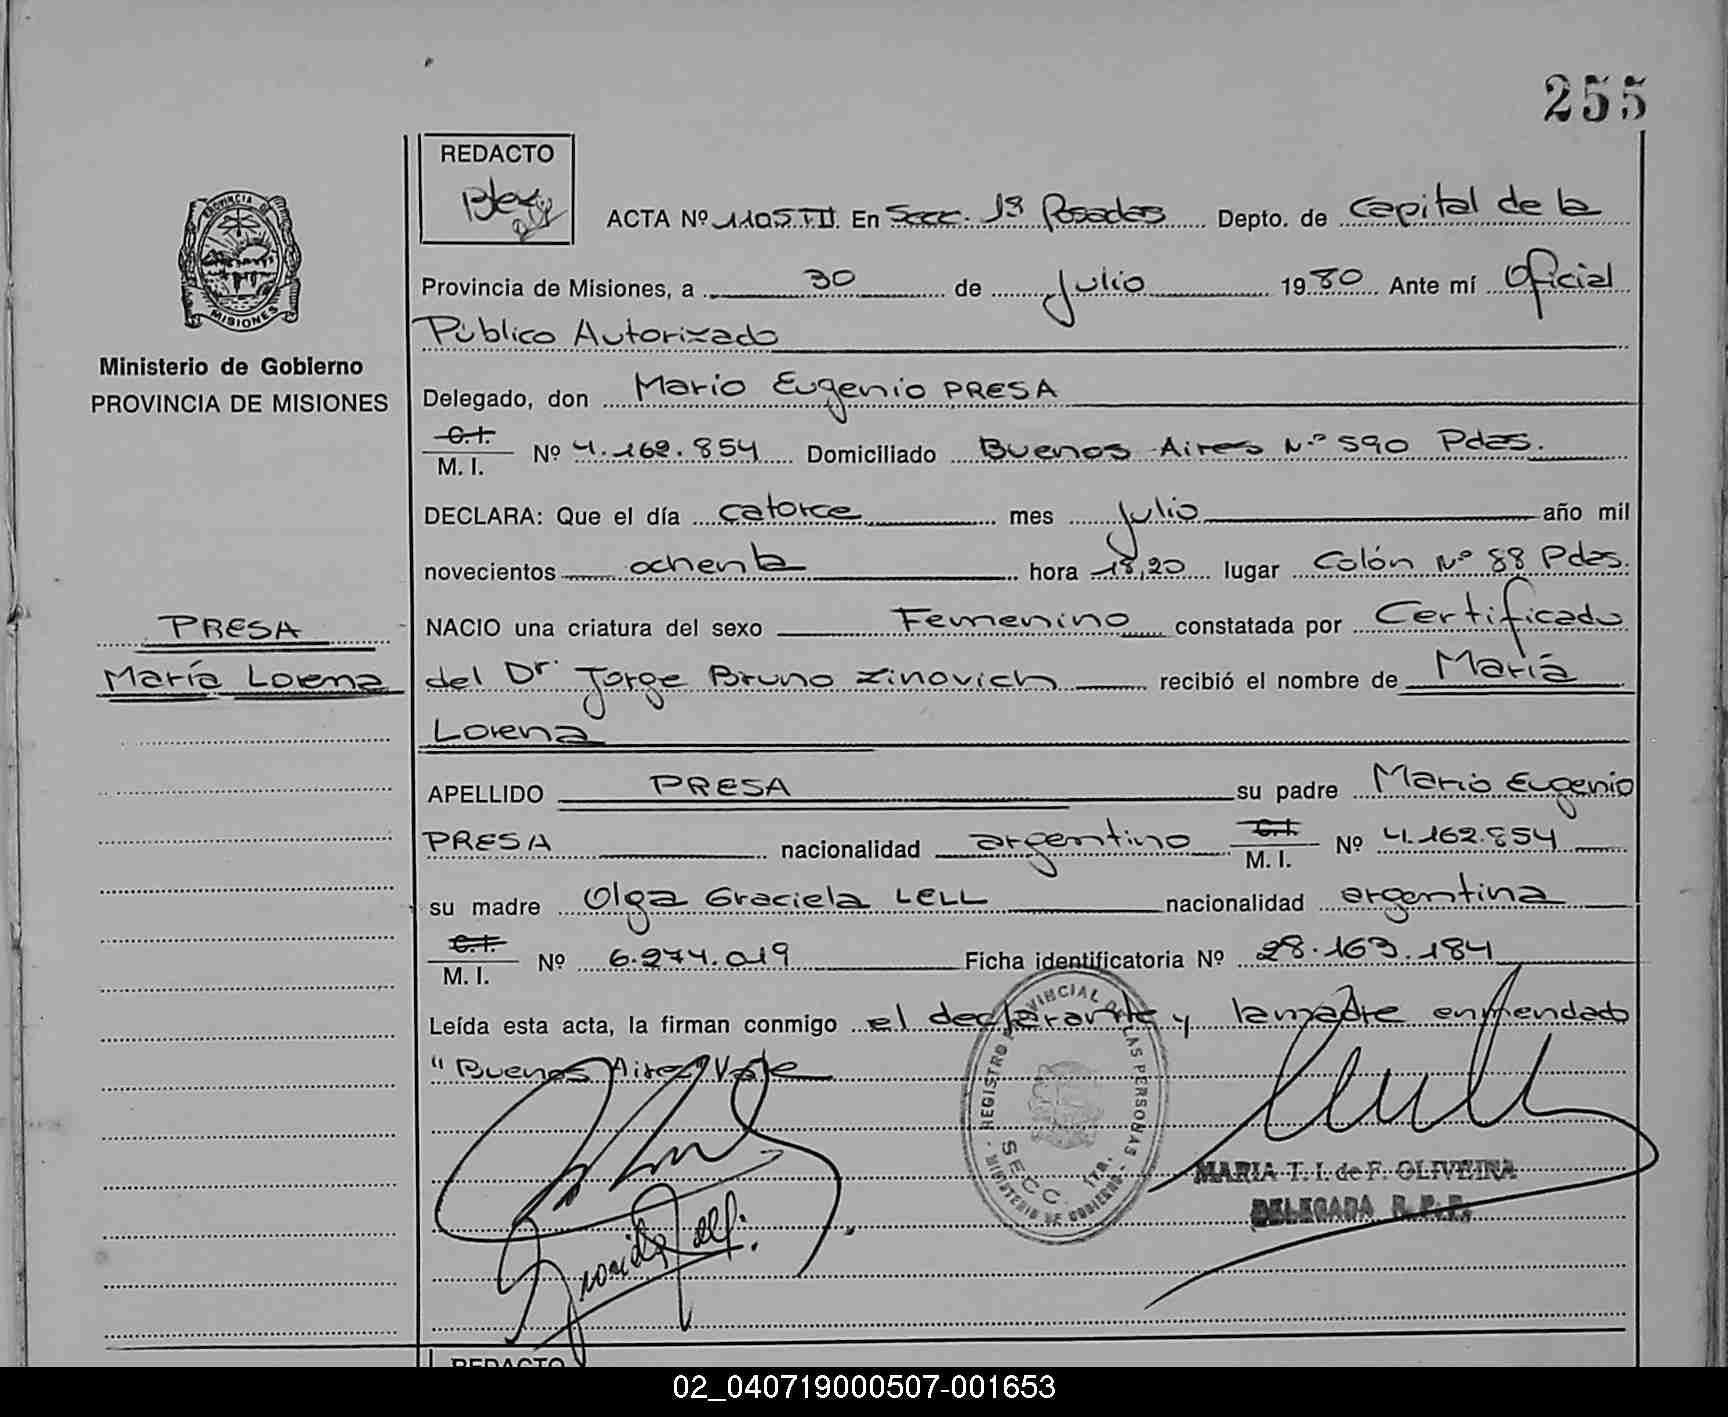 255
REDACTO
ACTA Nº 1105 III En Secc. 1ª Posadas Depto. de Capital de la
PROVINCIA DE
MISIONES
Provincia de Misiones, a 30 de Julio 1980 Ante mí Oficial
Público Autorizado
Ministerio de Gobierno
PROVINCIA DE MISIONES
Delegado, don Mario Eugenio PRESA
C.I.
M. I. Nº 4.162.854 Domiciliado Buenos Aires Nº 590 Pdas.
DECLARA: Que el día catorce mes julio año mil
novecientos ochenta hora 18,20 lugar Colón Nº 88 Pdas.
PRESA
María Lorena
NACIO una criatura del sexo Femenino constatada por Certificado
del Dr. Jorge Bruno Zinovich recibió el nombre de María
Lorena
APELLIDO PRESA su padre Mario Eugenio
PRESA nacionalidad argentino C.I. M. I. Nº 4.162.854
su madre Olga Graciela LELL nacionalidad argentina
C.I.
M. I. Nº 6.274.019 Ficha identificatoria Nº 28.163.184
Leída esta acta, la firman conmigo el declarante y la madre enmendado
"Buenos Aires Vale
REGISTRO PROVINCIAL DE LAS PERSONAS
MINISTERIO DE GOBIERNO
SECC. 1ra.
MARIA T. I. de F. OLIVEIRA
DELEGADA R.P.P.
REDACTO
02_040719000507-001653